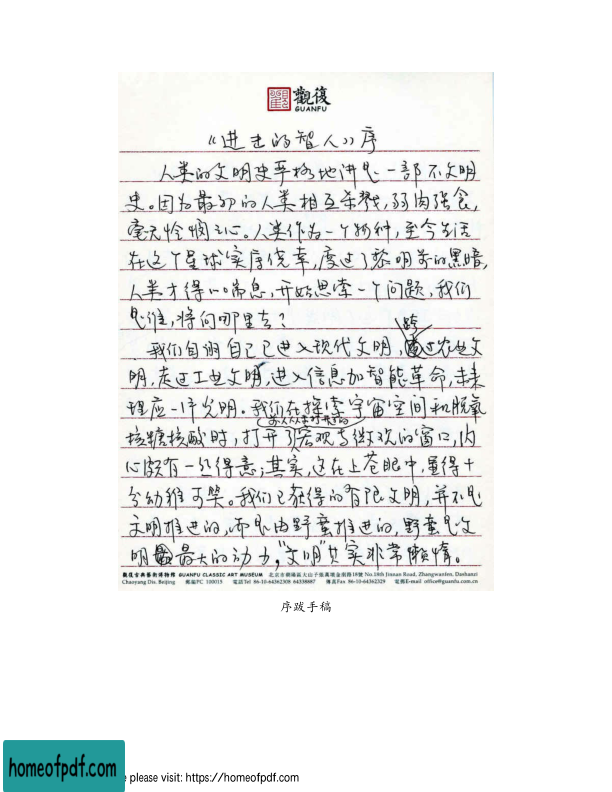 觀復
GUANFU
《进击的智人》序
人类的文明史严格地讲是一部不文明
史。因为最初的人类相互杀戮，弱肉强食，
毫无怜悯之心。人类作为一个物种，至今生活
在这个星球实属侥幸，度过了黎明前的黑暗，
人类才得以喘息，开始思索一个问题，我们
是谁，将向哪里去？
我们自诩自己已进入现代文明，跨过农业文
明，走过工业文明，进入信息加智能革命，未来
理应一片光明。我们在探索宇宙空间和脱氧
核糖核酸时，打开了前人从未打开过的宏观与微观的窗口，内
心颇有一丝得意；其实，这在上苍眼中，显得十
分幼稚可笑。我们已获得的有限文明，并不是
文明推进的，而是由野蛮推进的，野蛮是文
明最大的动力，“文明”其实非常懒惰。
觀復古典藝術博物館 GUANFU CLASSIC ART MUSEUM 北京市朝陽區大山子張萬墳金南路18號 No.18th Jinnan Road, Zhangwanfen, Dashanzi
Chaoyang Dis. Beijing 郵編PC 100015 電話Tel 86-10-64362308 64338887 傳真Fax 86-10-64362329 電郵E-mail office@guanfu.cn
序跋手稿
homeofpdf.com
please visit: https://homeofpdf.com